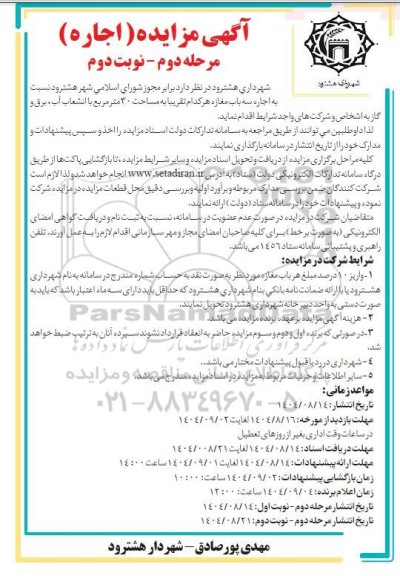 آگهی مزایده (اجاره)
مرحله دوم - نوبت دوم
شهرداری هشترود
شهرداري هشترود در نظر دارد برابر مجوز شوراي اسلامي شهر هشترود نسبت
به اجاره سه باب مغازه هر کدام تقریبا به مساحت ۳۰ متر مربع با انشعاب آب، برق و
گاز به اشخاص و شرکت های واجد شرایط اقدام نماید.
لذا داوطلبین می توانند از طریق مراجعه به سامانه تدارکات دولت اسناد مزایده را اخذ و سپس پیشنهادات و
مدارک خود را از تاریخ انتشار در سامانه بارگذاری نمایند.
کلیه مراحل برگزاری مزایده از دریافت و تحویل اسناد مزایده و سایر شرایط مزایده ، تا بازگشایی پاکت ها از طریق
درگاه سامانه تدارکات الکترونیکی دولت (ستاد) به آدرس www.setadiran.ir انجام خواهد شد و لذا لازم است
شرکت کنندگان ضمن بررسی مدارک مربوطه و برآورد اولیه و بررسی دقیق محل قطعات مزایده در مزایده شرکت
نموده و پیشنهادات خود را در سامانه ستاد (دولت) ارائه نمایند.
متقاضیان شرکت در مزایده در صورت عدم عضویت در سامانه، نسبت به ثبت نام و دریافت گواهی امضای
الکترونیکی (به صورت برخط) برای کلیه صاحبان امضای مجاز و مهر سازمانی اقدام لازم را به عمل آورند. تلفن
راهبری و پشتیبانی سامانه ستاد ۱۴۵۶ می باشد.
شرایط شرکت در مزایده:
۱- واریز ۱۰ درصد مبلغ هر باب مغازه مورد نظر به صورت نقد به حساب شماره مندرج در سامانه به نام شهرداری
هشترود یا با ارائه ضمانت نامه بانکی بنام شهرداری هشترود که حداقل باید دارای سه ماه اعتبار باشد که باید به
صورت دستی به واحد دبیرخانه شهرداری هشترود تحویل نمایند.
۲- هزینه آگهی مزایده بر عهده برنده مزایده می باشد.
۳- در صورتی که برنده اول و دوم و سوم مزایده حاضر به انعقاد قرارداد نشوند سپرده آنان به ترتیب ضبط خواهد
شد.
۴- شهرداری در رد یا قبول پیشنهادات مختار می باشد.
۵- سایر اطلاعات و جزئیات مربوط به مزایده در اسناد مزایده مندرج می باشد.
مواعد زمانی:
تاریخ انتشار: ۱۴۰۴/۰۸/۱۴
مهلت بازدید از مورخه: ۱۴۰۴/۸/۱۶ لغایت ۱۴۰۴/۰۹/۰۲
در ساعات وقت اداری بغیر از روزهای تعطیل
مهلت دریافت اسناد: ۱۴۰۴/۰۸/۱۴ لغایت ۱۴۰۴/۰۰۸/۲۱
مهلت ارائه پیشنهادات: ۱۴۰۴/۰۸/۱۴ لغایت ۱۴۰۴/۰۹/۰۱ ساعت ۱۴:۰۰
زمان بازگشایی پیشنهادات: ۱۴۰۴/۰۹/۰۲ ساعت ۱۰:۰۰
زمان اعلام برنده: ۱۴۰۴/۰۹/۰۴ ساعت ۱۲:۰۰
تاریخ انتشار مرحله دوم - نوبت اول: ۱۴۰۴/۰۸/۱۴
تاریخ انتشار مرحله دوم - نوبت دوم: ۱۴۰۴/۰۸/۲۱
مهدی پور صادق - شهردار هشترود
ParsNamadData
۰۲۱-۸۸۳۴۹۶۷۰-۵